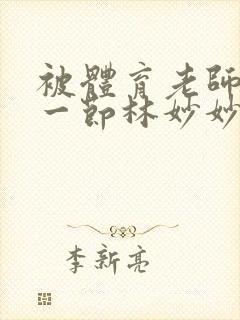 被體育老師
一節林妙妙
李新亮